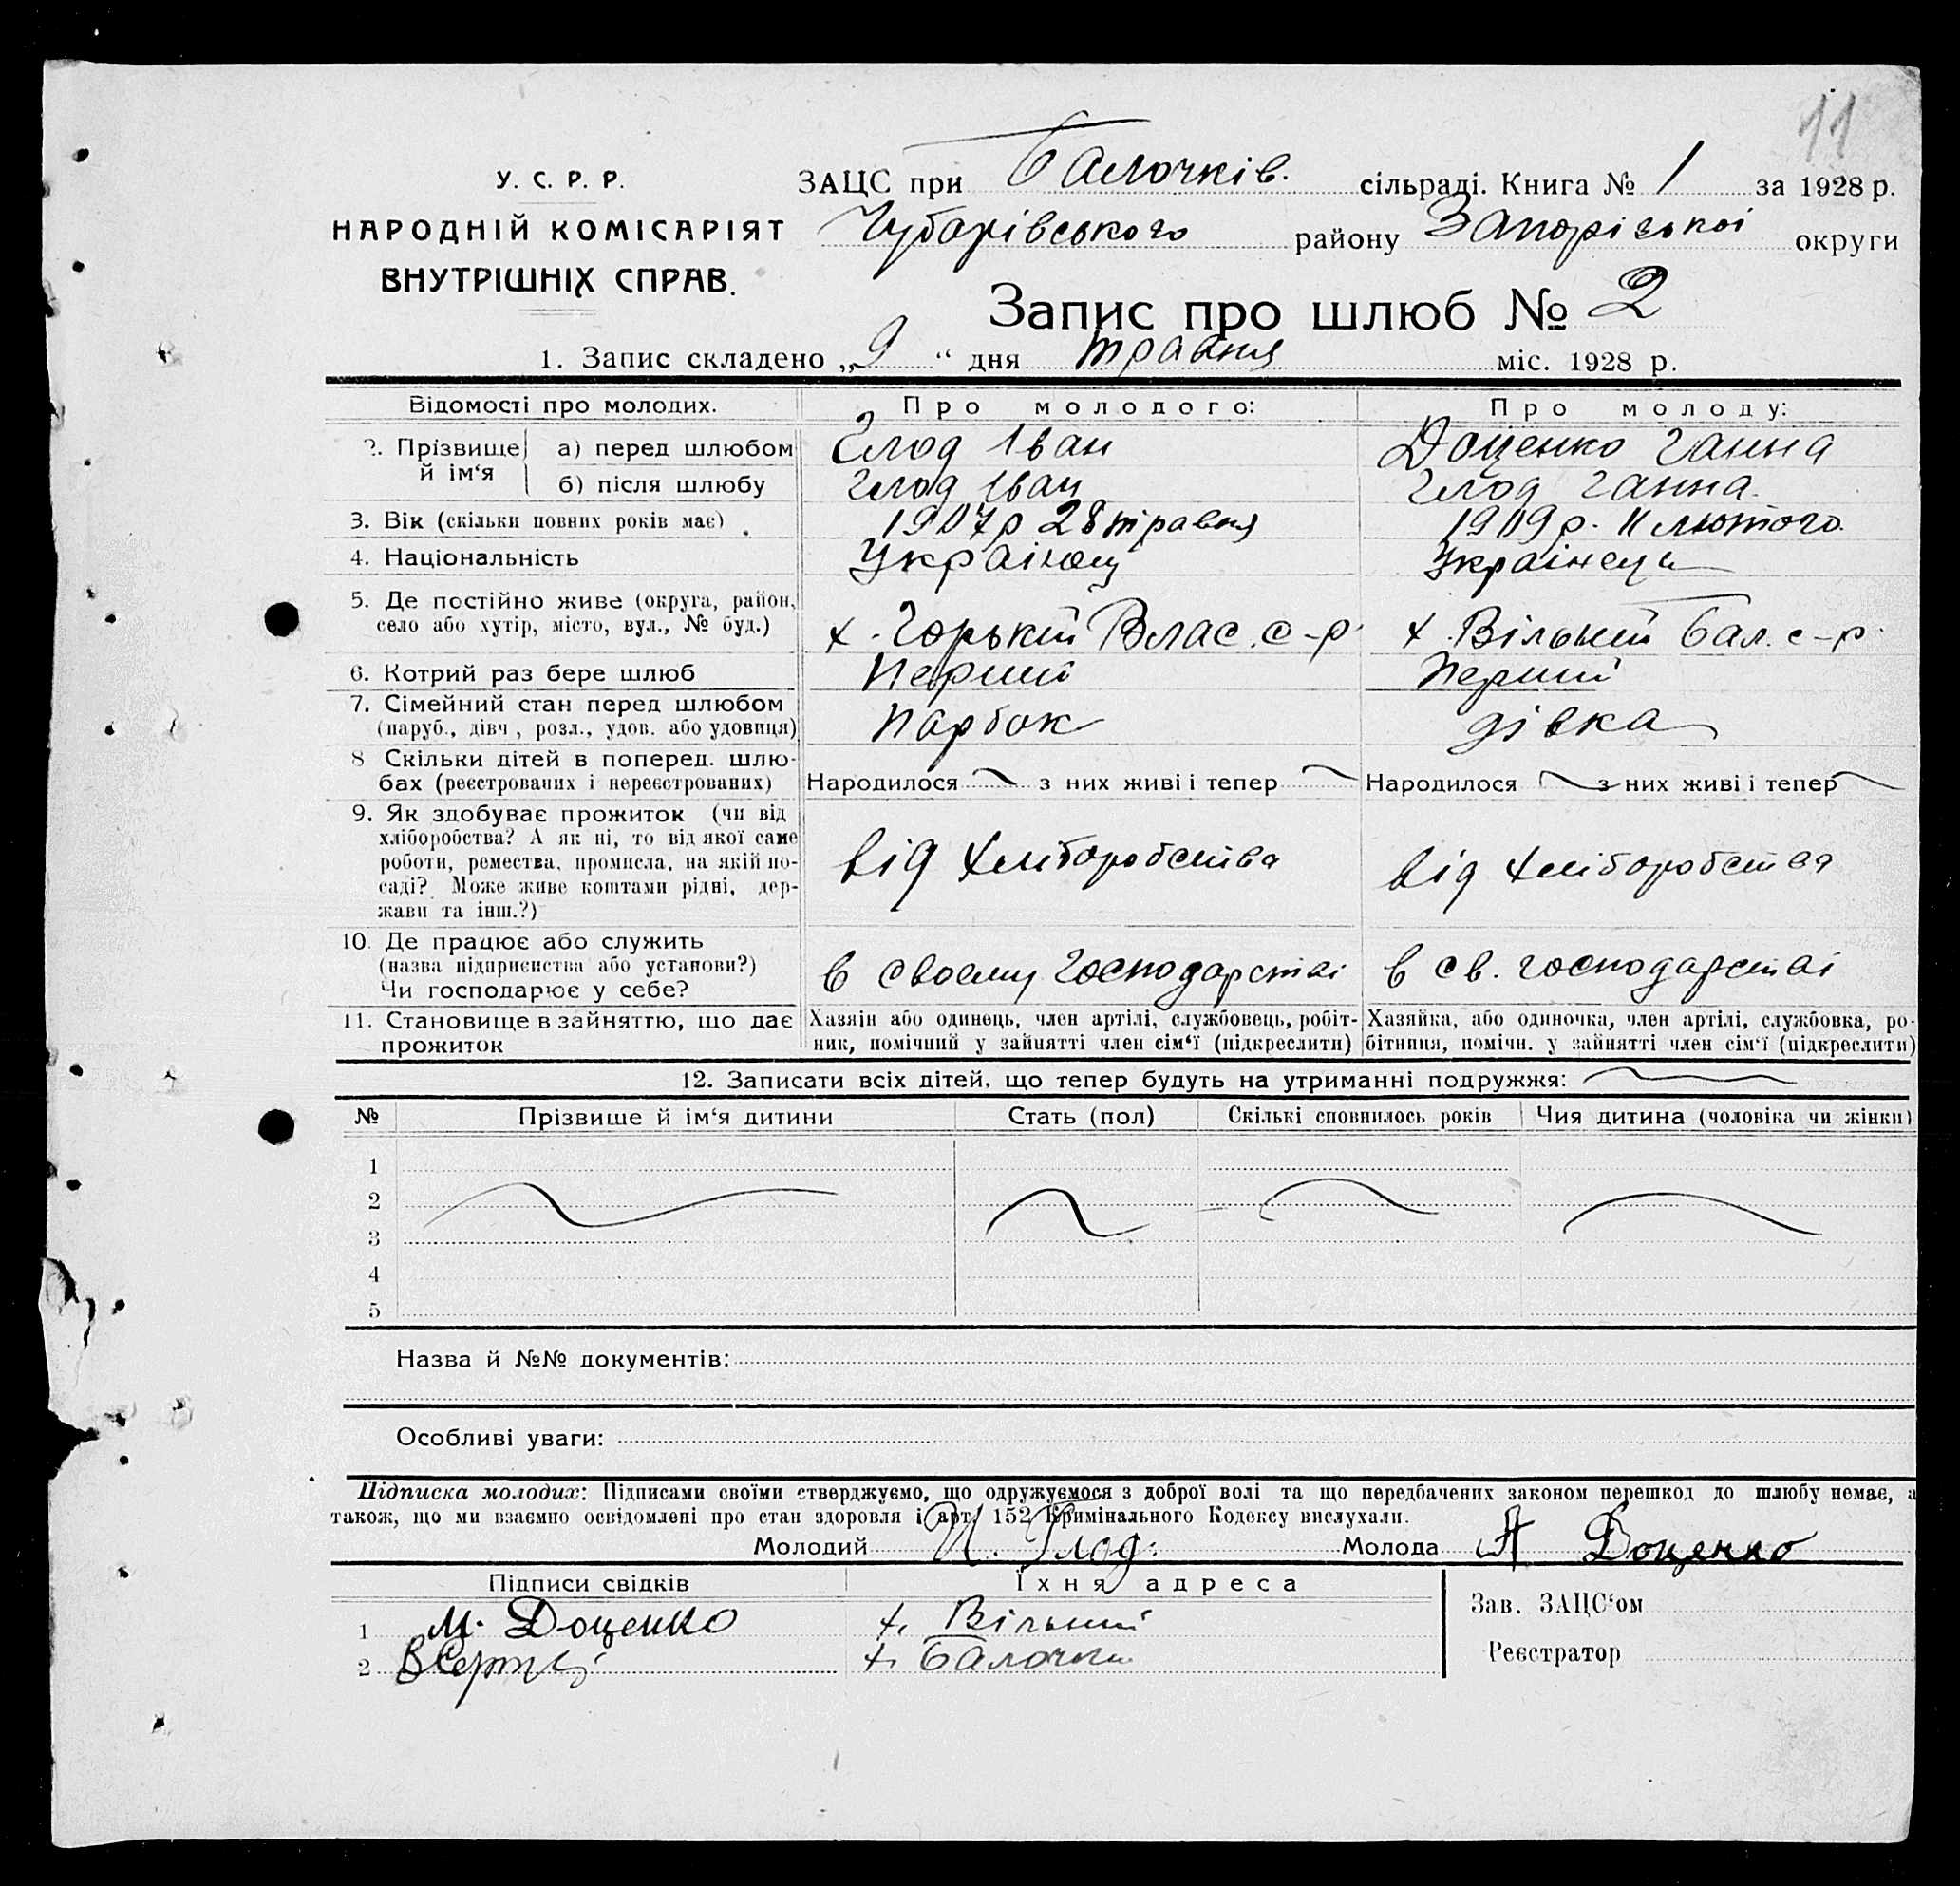 11
У. С. Р. Р.
НАРОДНІЙ КОМІСАРІЯТ
ВНУТРІШНІХ СПРАВ.
ЗАЦС при Балочків. сільраді. Книга № 1 за 1928 р.
Чубарівського району Запорізької округи
Запис про шлюб № 2
1. Запис складено „9“ дня травня міс. 1928 р.
Відомості про молодих. Про молодого: Про молоду:
2. Прізвище й ім‘я а) перед шлюбом Глод Іван Доценко Ганна
б) після шлюбу Глод Іван Глод Ганна.
3. Вік (скільки повних років має) 1907 р 28 травня 1909 р. 11 лютого
4. Національність Українец Українець
5. Де постійно живе (округа, район,
село або хутір, місто, вул., № буд.) х. Горький Влас. с-р. х. Вільний Бал. с-р.
6. Котрий раз бере шлюб Перший Перший
7. Сімейний стан перед шлюбом
(паруб., дівч., розл., удов. або удовиця) Парбок дівка
8 Скільки дітей в поперед. шлю-
бах (реєстрованих і нереєстрованих) Народилося з них живі і тепер Народилося з них живі і тепер
9. Як здобуває прожиток (чи від
хліборобства? А як ні, то від якої саме
роботи, ремества, промисла, на якій по-
саді? Може живе коштами рідні, дер-
жави та інш.?)
від хліборобства від хліборобства
10. Де працює або служить
(назва підприємства або установи?)
Чи господарює у себе?
в своєму господарстві в св. господарстві
11. Становище в зайняттю, що дає
прожиток
Хазяін або одинець, член артілі, службовець, робіт-
ник, помічний у зайнятті член сім‘ї (підкреслити)
Хазяйка, або одиночка, член артілі, службовка, ро-
бітниця, помічн. у зайнятті член сім‘ї (підкреслити)
12. Записати всіх дітей, що тепер будуть на утриманні подружжя:
№ Прізвише й ім‘я дитини Стать (пол) Скількі сповнилось років Чия дитина (чоловіка чи жінки)
1
2
3
4
5
Назва й №№ документів:
Особливі уваги:
Підписка молодих: Підписами своїми стверджуємо, що одружуємося з доброї волі та що передбачених законом перешкод до шлюбу немає, а
також, що ми взаємно освідомлені про стан здоровля і арт. 152 Кримінального Кодексу вислухали.
Молодий И. Глод. Молода А Доценко
Підписи свідків Їхня адреса
1 М. Доценко х. Вільний
2 х. Балочки
Зав. ЗАЦС‘ом
Реєстратор